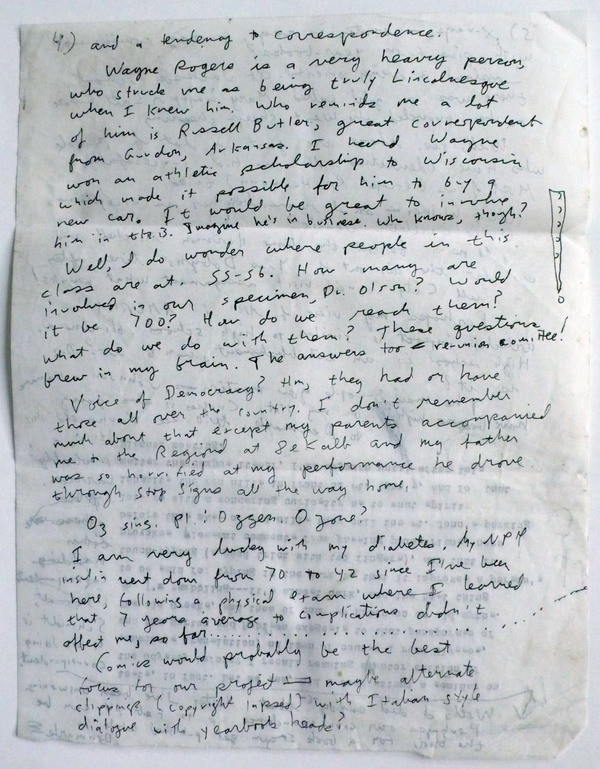 4.) and a tendency to correspondence.
Wayne Rogers is a very heavy person,
who struck me as being truly Lincolnesque
when I knew him. Who reminds me a lot
of him is Russell Butler, great correspondent
from Gurdon, Arkansas. I heard Wayne
won an athletic scholarship to Wisconsin
which made it possible for him to buy a
new car. It would be great to involve
him in Imagine he's in business. Who knows, though?
Well, I do wonder where people in this
class are at. 55-56. How many are
involved in our specimen, Dr. Olson? Would
it be 700? How do we reach them?
What do we do with them? These questions
brew in my brain. The answers too reunion comittee!
Voice of Democracy? Hm, they had or have
those all over the country. I don't remember
much about that except my parents accompanied
me to the Regional at DeKalb and my father
was so horrified at my performance he drove
through stop signs all the way home.
O3 sing. pl.: Ozzen, Ozone?
I am very lucky with my diabetes. My NPH
insulin went down from 70 to 42 since I've been
here, following a physical exam where I learned
that 7 years average to complications didn't
affect me, so far..........
Comics would probably be the best
focus for our project — maybe alternate
clippings (copyright lapsed) with Italian style
dialogue with yearbook heads?